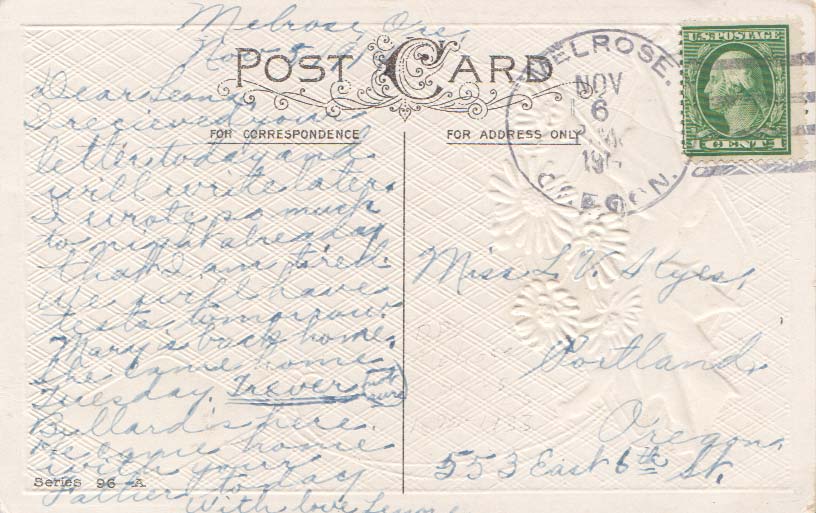 Melrose, Ore,
Nov. 5, 191
POST CARD
FOR CORRESPONDENCE
Dear Lena,
I recieved your
letter today and
will write later.
I wrote so much
to night already
that I am tired.
We will have
tests tomorrow.
Mary's back home.
She came home
Tuesday. Trever
Bullard is here.
He came home
with your
Father today
With love Lenore
Series 96 A
FOR ADDRESS ONLY
MELROSE.
NOV
6
191
OREGON.
U.S. POSTAGE
1 CENT 1
Miss L. V. Skyes,
Portland,
Oregon,
553 East 6th St.